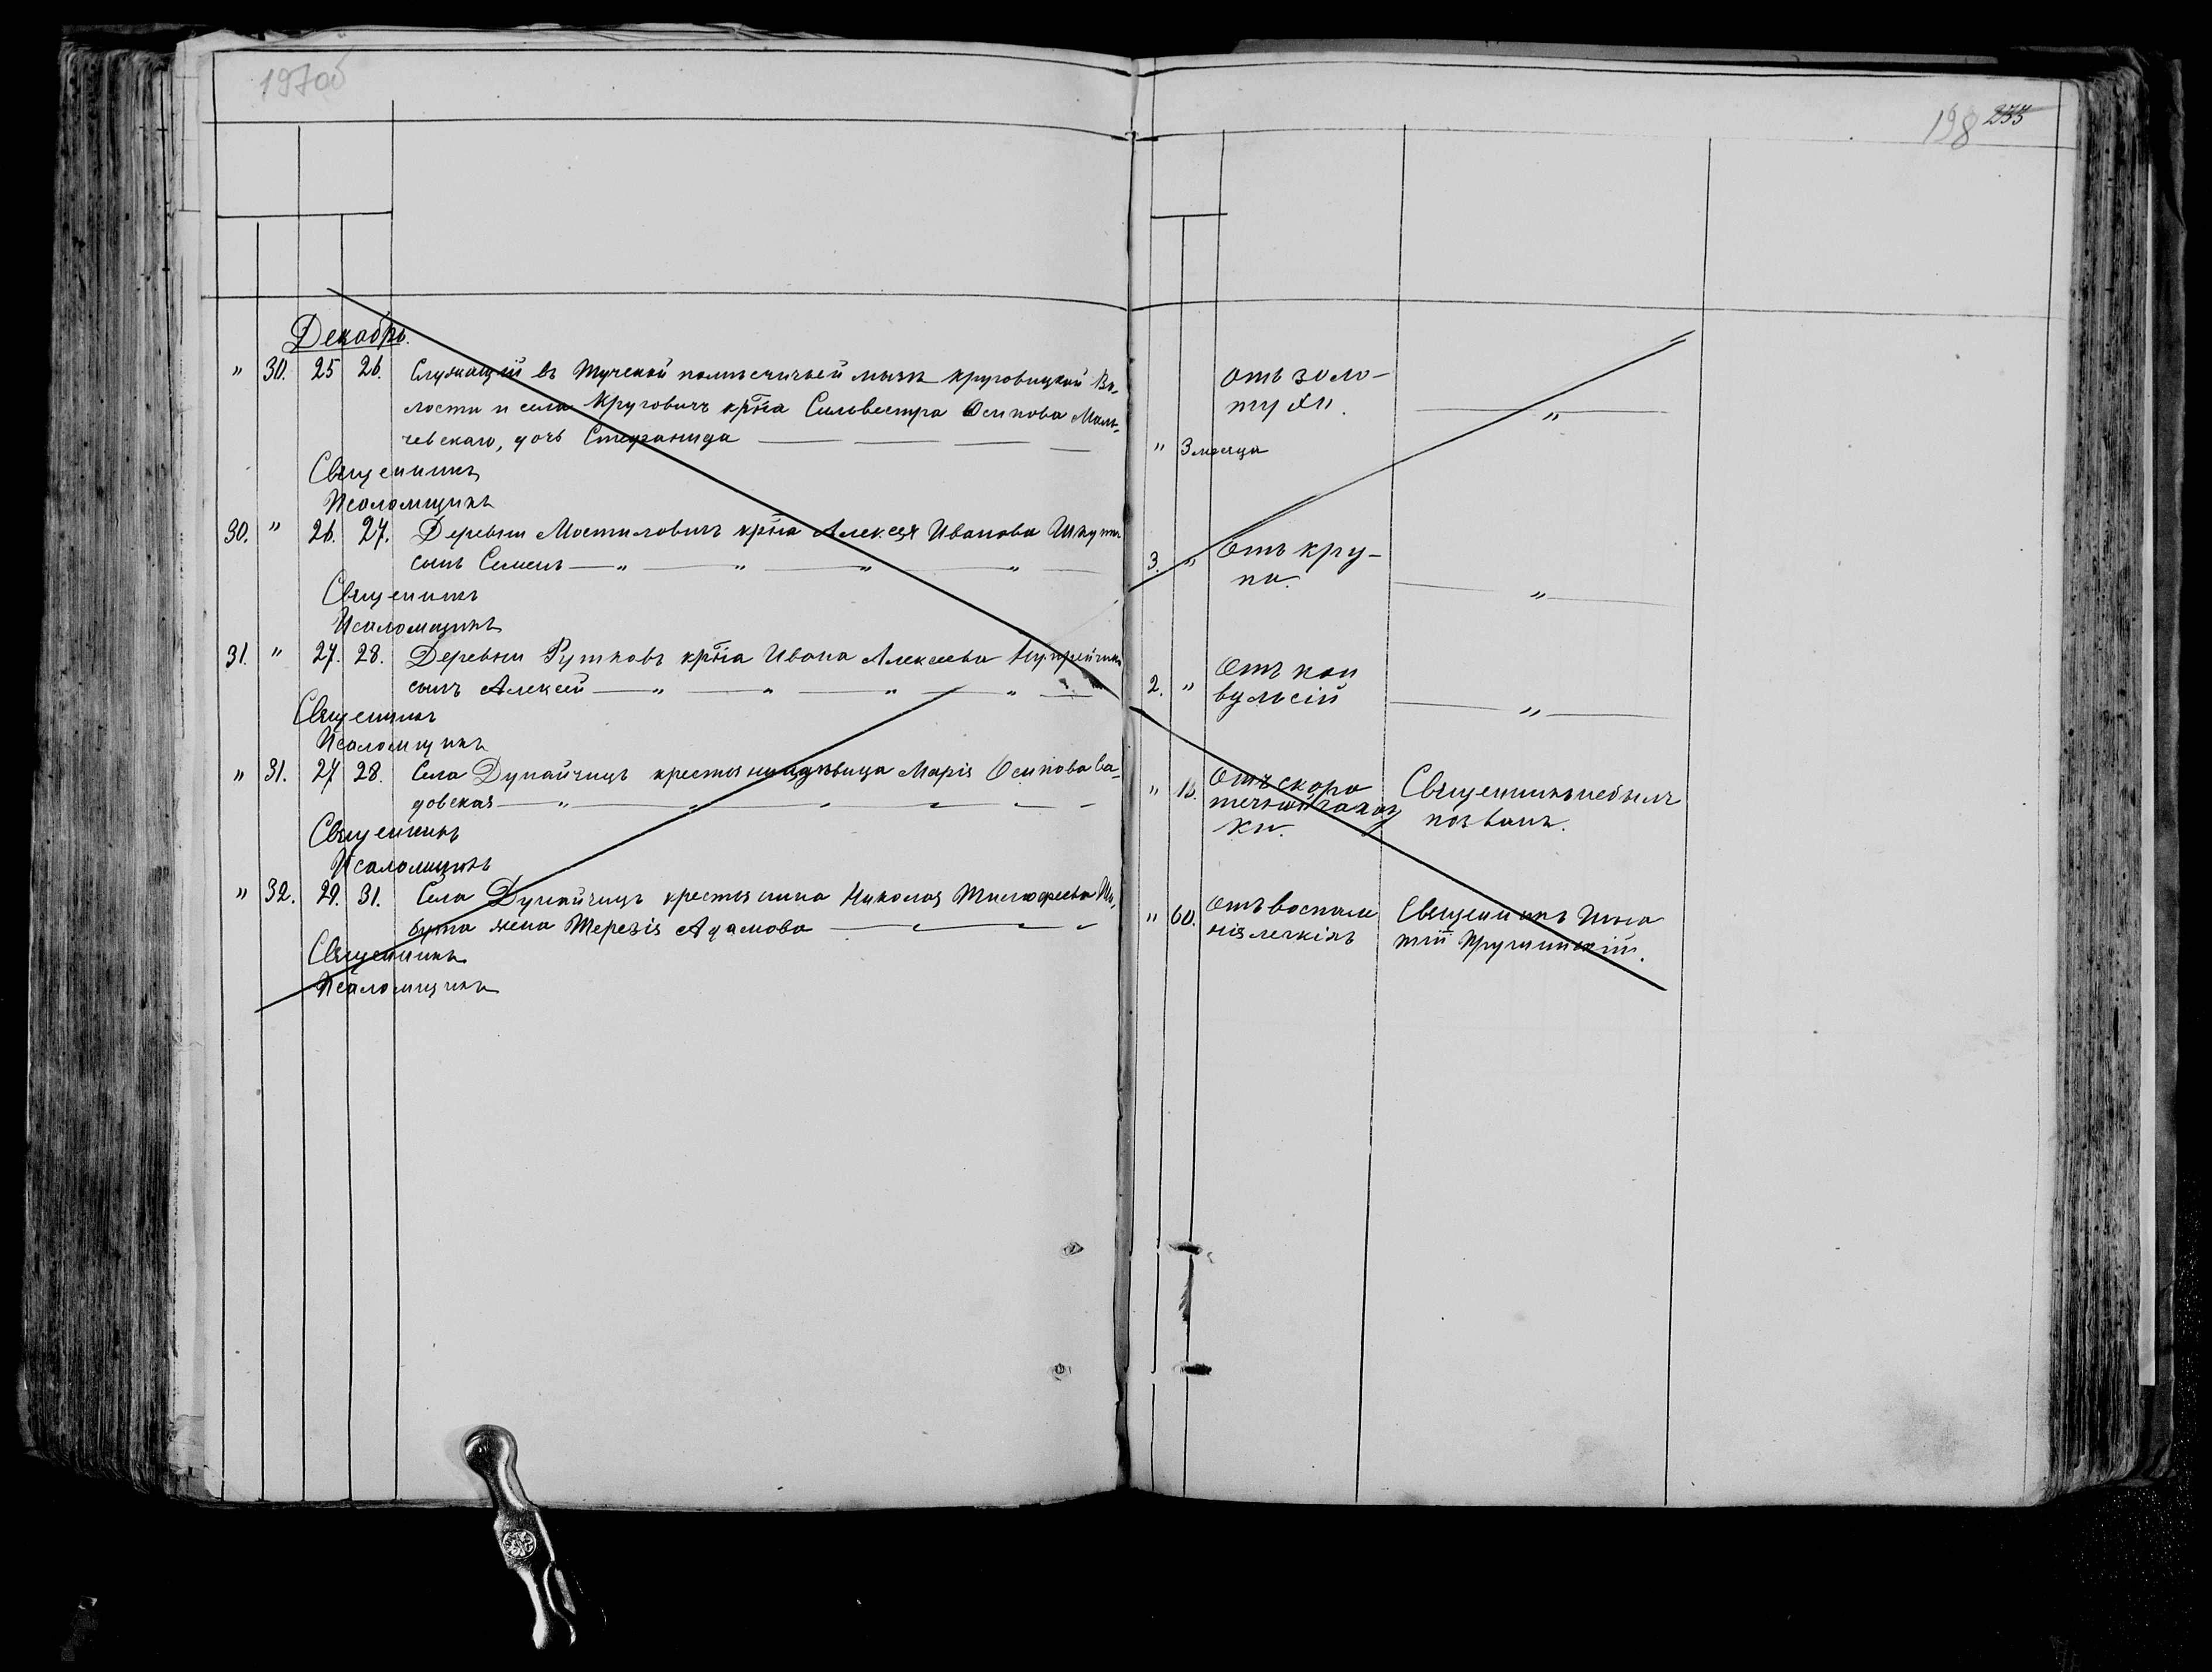 197об
198 255
Декабрь.
" 30. 25 26. Служащей въ Тучской помѣщичьей мызѣ Круговицкой Во-
лости и села Круговичъ кр̃на Сильвестра Осипова Маль-
чевскаго, дочь Стефанида
" 3 месяца
отъ золо-
тухи.
"
Священникъ
Псаломщикъ
30. " 26. 27. Деревни Мостиловичъ кр̃на Алексея Иванова
сынъ Семенъ — " — " — " — " —
3. " Отъ кру-
па.
"
Священникъ
Псаломщикъ
31. " 27. 28. Деревни Рутковъ кр̃на Ивана Алексеева
сынъ Алексей — " — " — " — " —
2. " Отъ кон
вульсій
"
Священникъ
Псаломщикъ
" 31. 27 28. Села Дунайчицъ крестьянка дѣвица Марія Осипова Са-
довская — " —
" 18. Отъ скоро
течной чахот
ки.
Священникъ небылъ
позванъ.
Священникъ
Псаломщикъ
" 32. 29. 31. Села Дунайчицъ крестьянина Николая Тимофеева
жена Терезія Адамова
" 60. Отъ воспале
нія легкихъ
Священникъ Игна
тій
Священникъ
Псаломщикъ